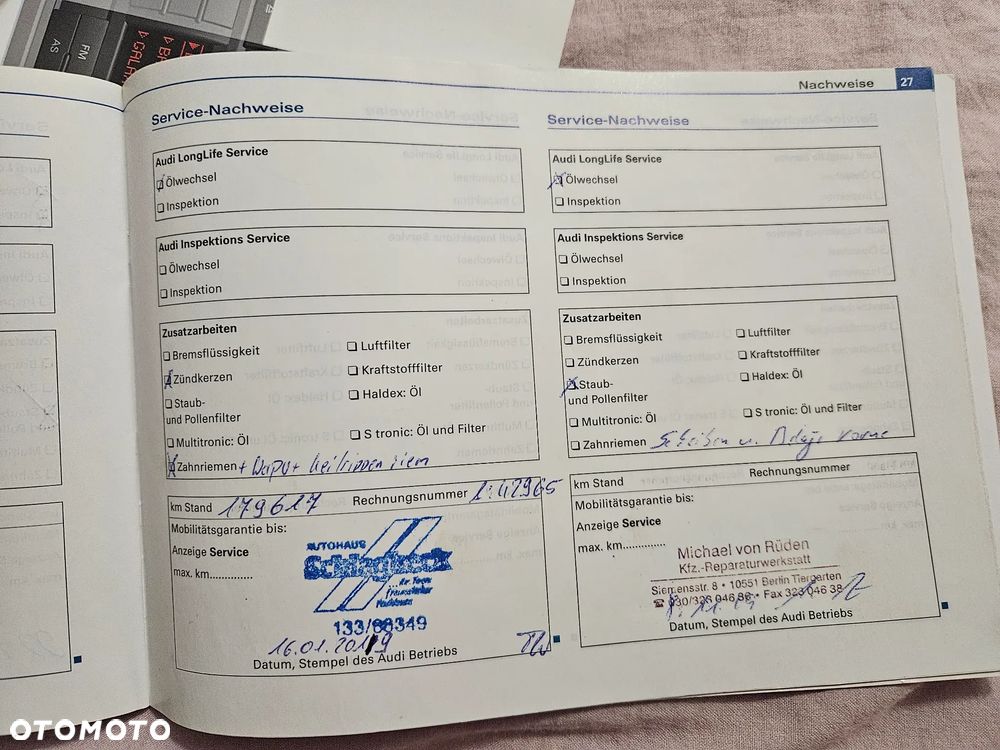 FM
AS
Nachweise 27
Service-Nachweise
Audi LongLife Service
Ölwechsel
Inspektion
Audi Inspektions Service
Ölwechsel
Inspektion
Zusatzarbeiten
Bremsflüssigkeit
Luftfilter
Zündkerzen
Kraftstofffilter
Staub-
und Pollenfilter
Haldex: Öl
Multitronic: Öl
S tronic: Öl und Filter
Zahnriemen + Wapu +
km Stand 179617 Rechnungsnummer 1:42965
Mobilitätsgarantie bis:
Anzeige Service
max. km..............
AUTOHAUS
133/68349
16.01.2019
Datum, Stempel des Audi Betriebs
Service-Nachweise
Audi LongLife Service
Ölwechsel
Inspektion
Audi Inspektions Service
Ölwechsel
Inspektion
Zusatzarbeiten
Bremsflüssigkeit
Luftfilter
Zündkerzen
Kraftstofffilter
Staub-
und Pollenfilter
Haldex: Öl
Multitronic: Öl
S tronic: Öl und Filter
Zahnriemen Scheiben u. Beläge vorne
km Stand Rechnungsnummer
Mobilitätsgarantie bis:
Anzeige Service
max. km..............
Michael von Rüden
Kfz.-Reparaturwerkstatt
Siemensstr. 8 • 10551 Berlin Tiergarten
☎ 030/323 046 36 • Fax 323 046 38
Datum, Stempel des Audi Betriebs
OTOMOTO